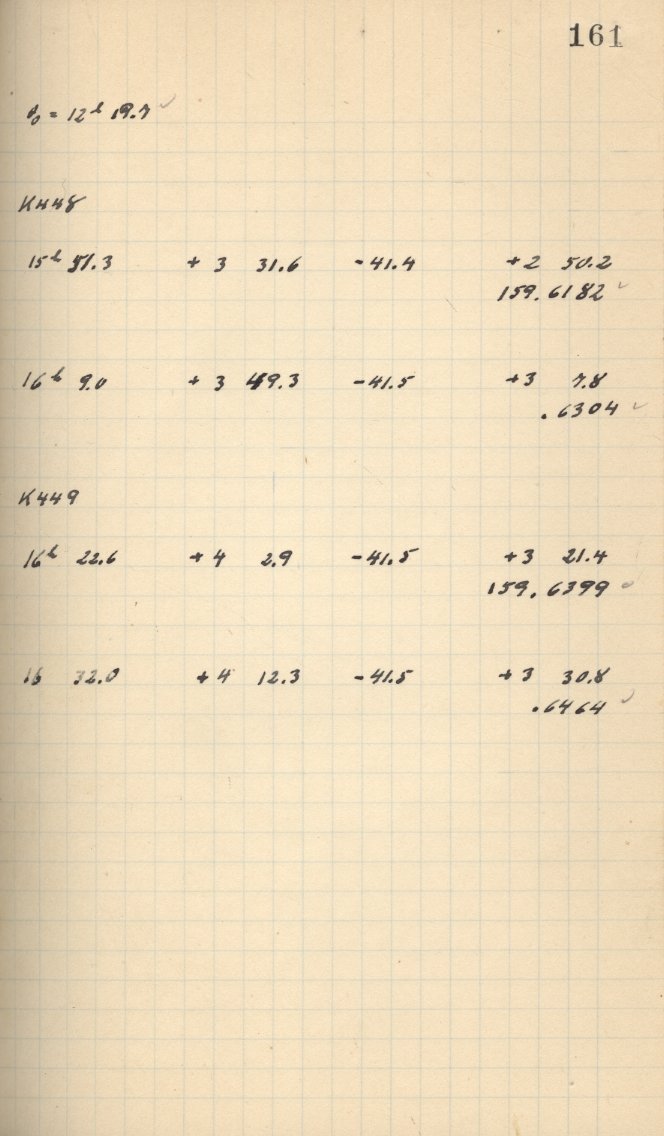 161
θ₀ = 12ʰ 19.7 ✓
K448
15ʰ 51.3 + 3 31.6 - 41.4 + 2 50.2
159.6182 ✓
16ʰ 9.0 + 3 49.3 - 41.5 + 3 7.8
.6304 ✓
K449
16ʰ 22.6 + 4 2.9 - 41.5 + 3 21.4
159.6399
16 32.0 + 4 12.3 - 41.5 + 3 30.8
.6464 ✓